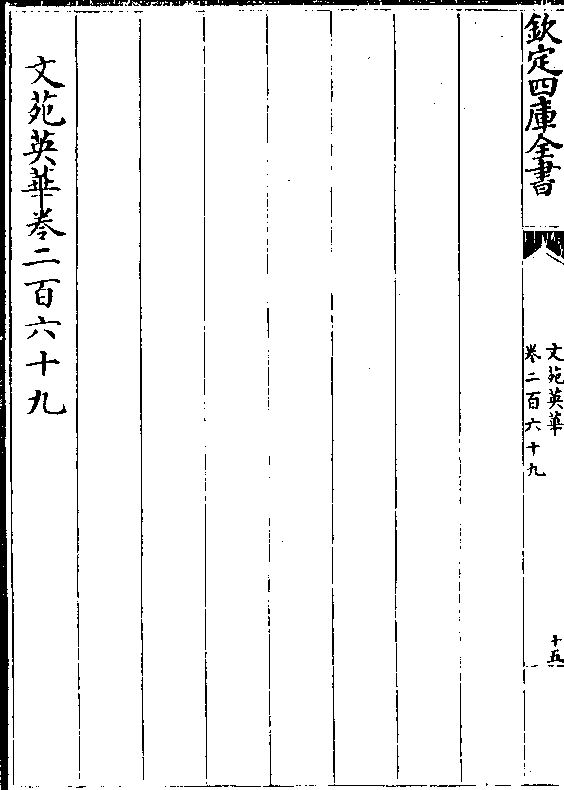 欽定四庫全書
文苑英華
卷二百六十九
十五
文苑英華卷二百六十九